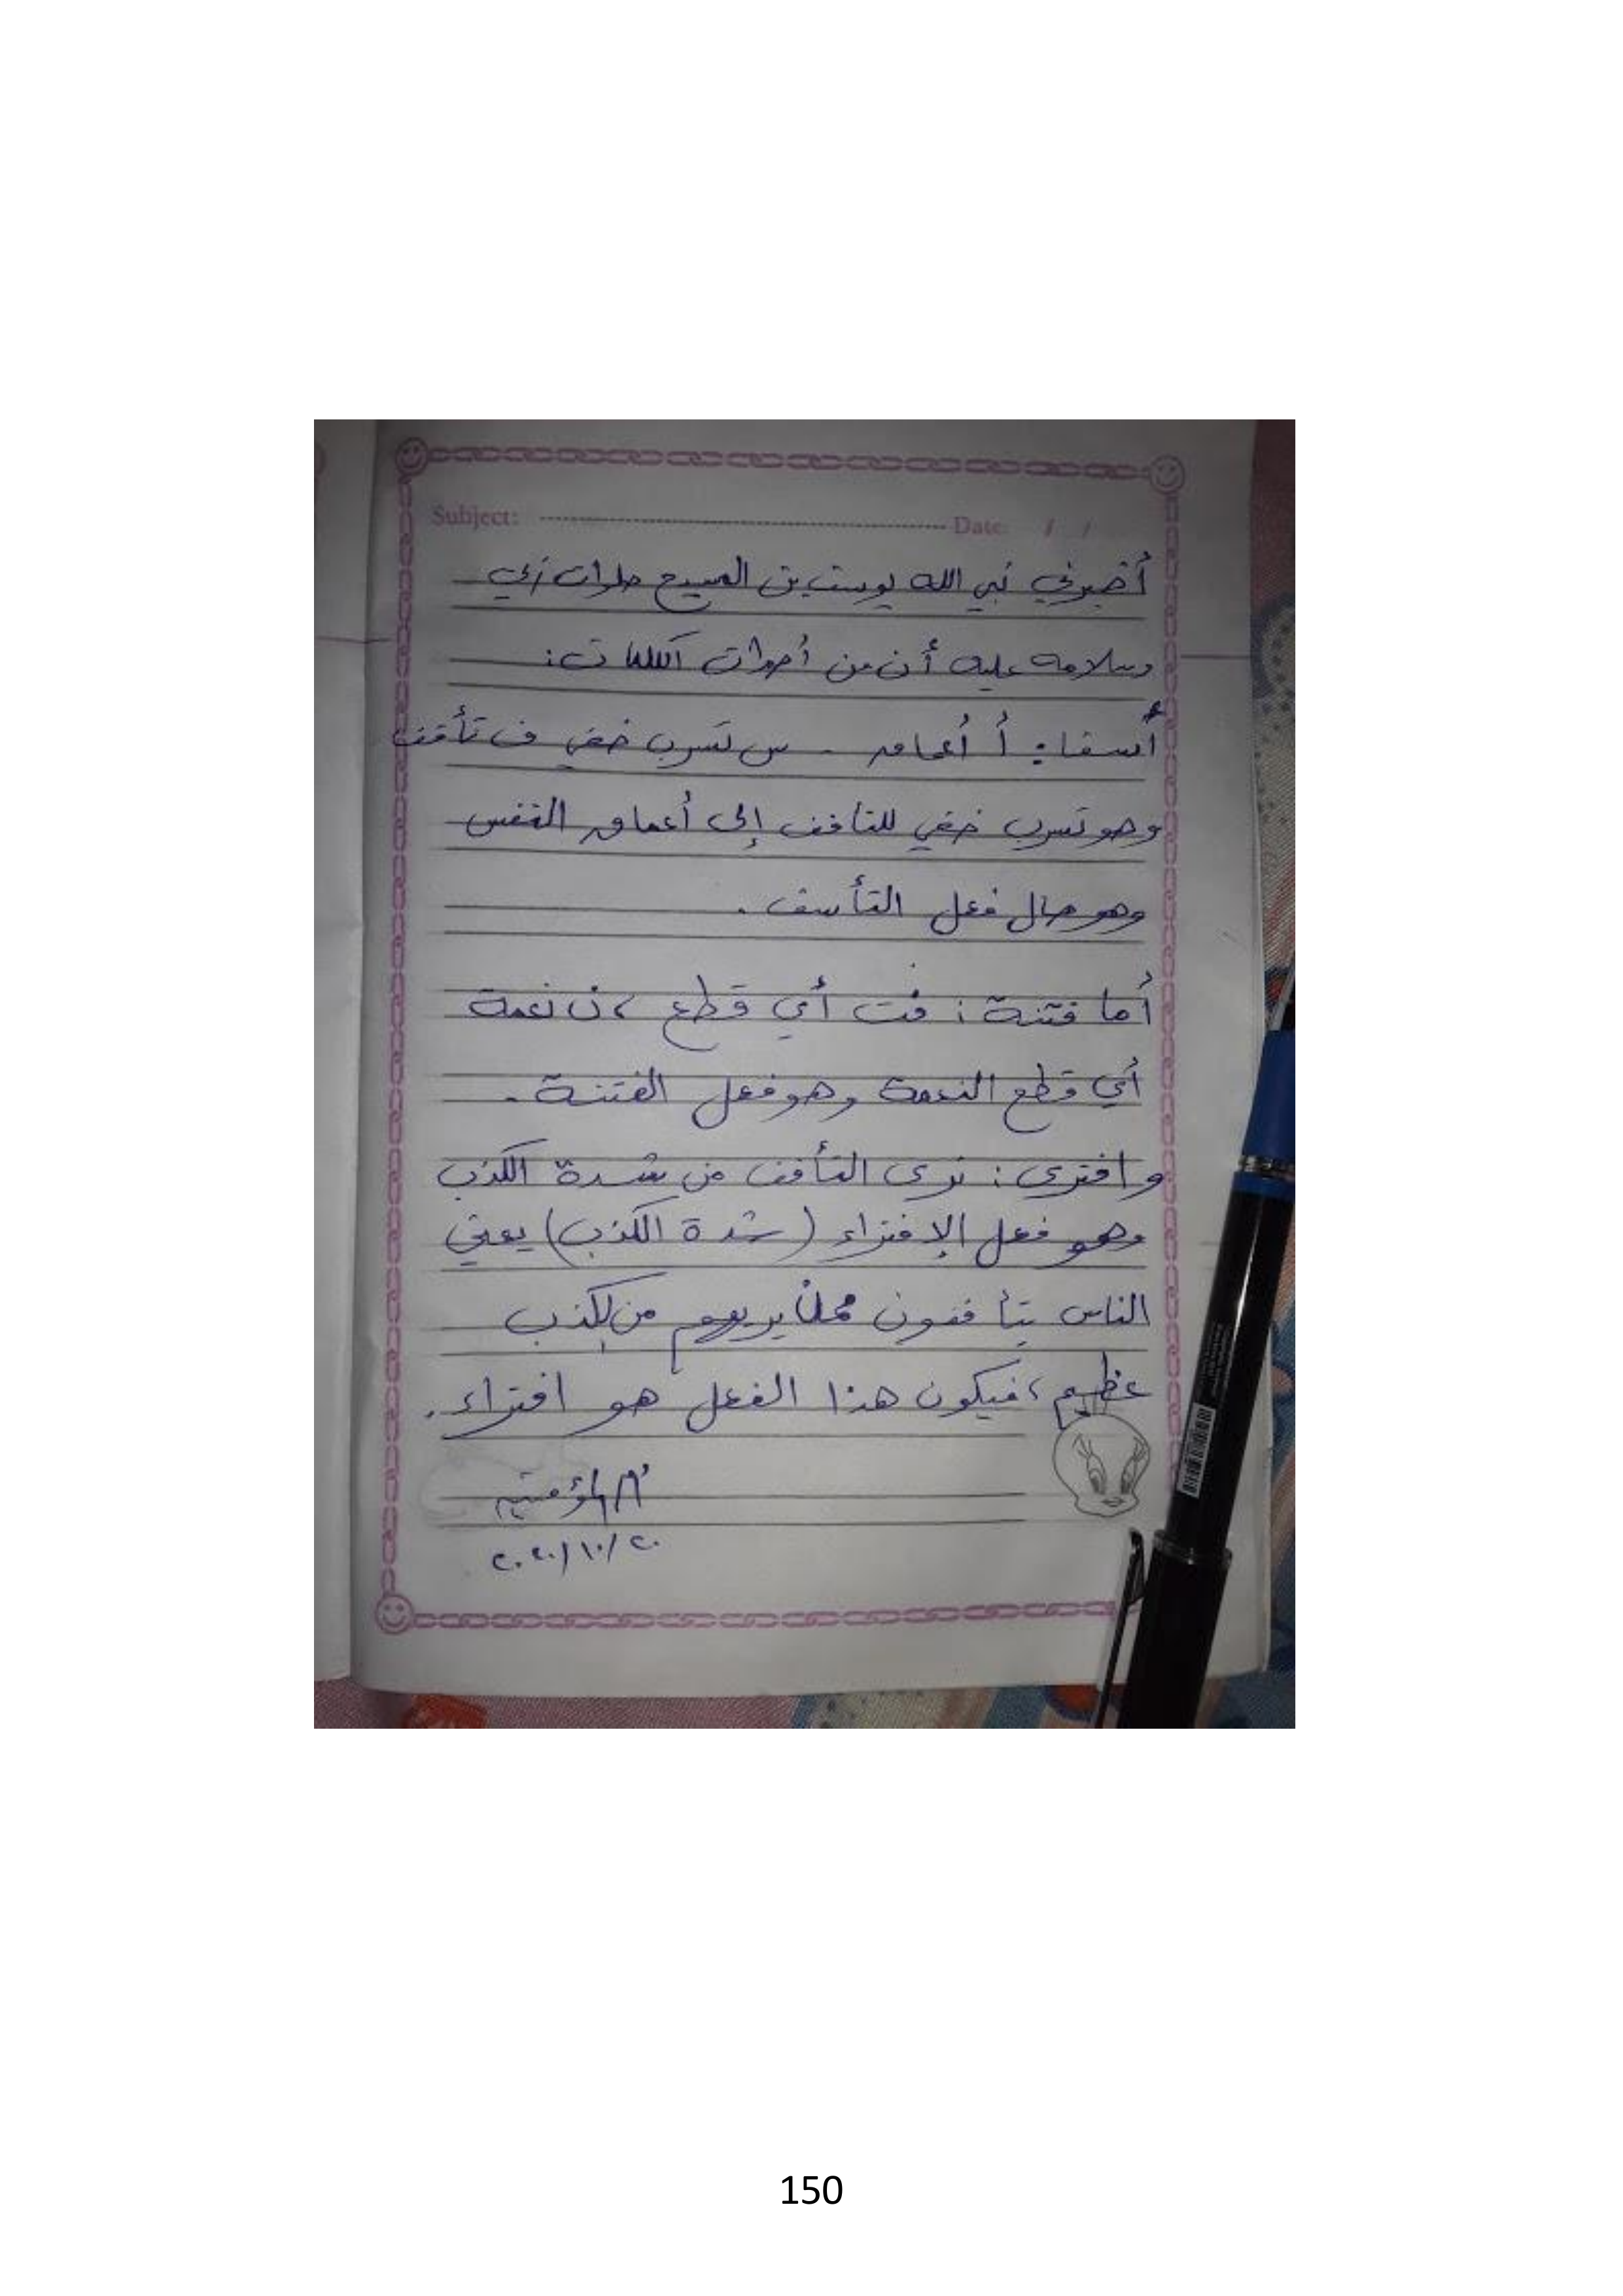 Subject: Date: / /
أخبرني نبي الله يوسف بن المسيح صلوات ربي
وسلامه عليه أن من أصوات الكلمات:
أسفا: أ أعماق - س تسرب خفي ف تأفف
وهو تسرب خفي للتأفف إلى أعماق النفس
وهو حال فعل التأسف .
أما فتنة : فت أي قطع ، ن نعمة
أي قطع النعمة وهو فعل الفتنة .
و افترى : نرى التأفف من شدة الكذب
وهو فعل الإفتراء (شدة الكذب) يعني
الناس يتأففون مما يريهم من كذب
عظيم ، فيكون هذا الفعل هو افتراء .
أم المؤمنين
٢٠٢٠/١٠/٢٠
150